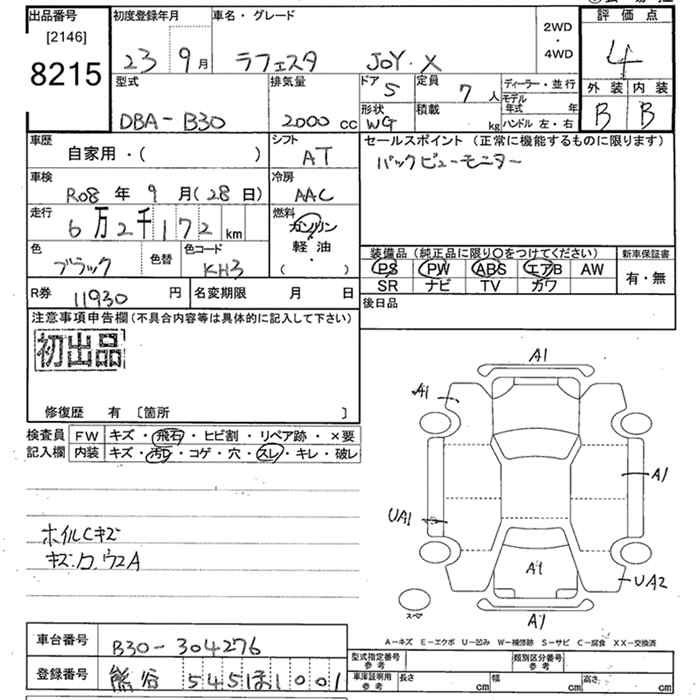 出品番号
[2146]
8215
初度登録年月
23 9月
車名・グレード
ラフェスタ JOY・X
2WD
・
4WD
評価点
4
外装 内装
B B
型式
DBA-B30
排気量
2000 cc
ドア 5
定員 7 人
ディーラー・並行
モデル年式 年
形状 WG
積載 kg
ハンドル 左・右
車歴
自家用・( )
シフト
AT
セールスポイント(正常に機能するものに限ります)
バックビューモニター
車検
R08 年 9 月(28日)
冷房
AAC
走行
6万2千172 km
燃料
ガソリン
軽油
( )
色
ブラック
色替
色コード
KH3
装備品(純正品に限り○をつけてください)
新車保証書
PS PW ABS エアB AW
SR ナビ TV カワ
有・無
R券 11930 円
名変期限 月 日
後日品
注意事項申告欄(不具合内容等は具体的に記入して下さい)
初出品
修復歴 有 〔箇所 〕
検査員記入欄
FW キズ・飛石・ヒビ割・リペア跡・×要
内装 キズ・汚レ・コゲ・穴・スレ・キレ・破レ
ホイルCキズ
A1
A1
A1
UA1
A1
UA2
A1
スペア
A-キズ E-エクボ U-凹み W-補修跡 S-サビ C-腐食 XX-交換済
車台番号 B30-304276
登録番号 熊谷 545 ほ 1001
型式指定番号 参考
類別区分番号 参考
車庫証明用 参考
長さ cm
幅 cm
高さ cm